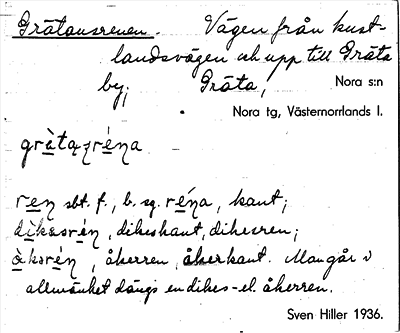 Grätausrenen. Vägen från kust-
landsvägen och upp till Gräta
by; Gräta, Nora s:n
Nora tg, Västernorrlands l.
grä̀tazréna
ren sbt. f., b. sg. réna, kant;
dikesrén, dikeskant, dikesren;
åkerren, åkerkant. Man går i
allmänhet längs en dikes- el. åkerren.
Sven Hiller 1936.